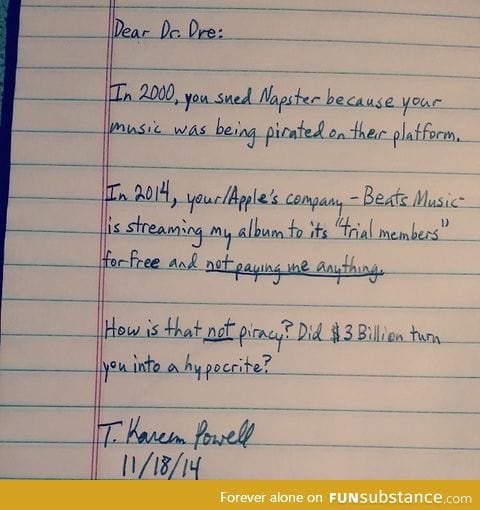 Dear Dr. Dre:
In 2000, you sued Napster because your
music was being pirated on their platform.
In 2014, your/Apple's company - Beats Music-
is streaming my album to its "trial members"
for free and not paying me anything.
How is that not piracy? Did $3 Billion turn
you into a hypocrite?
T. Kareem Powell
11/18/14
Forever alone on FUNsubstance.com